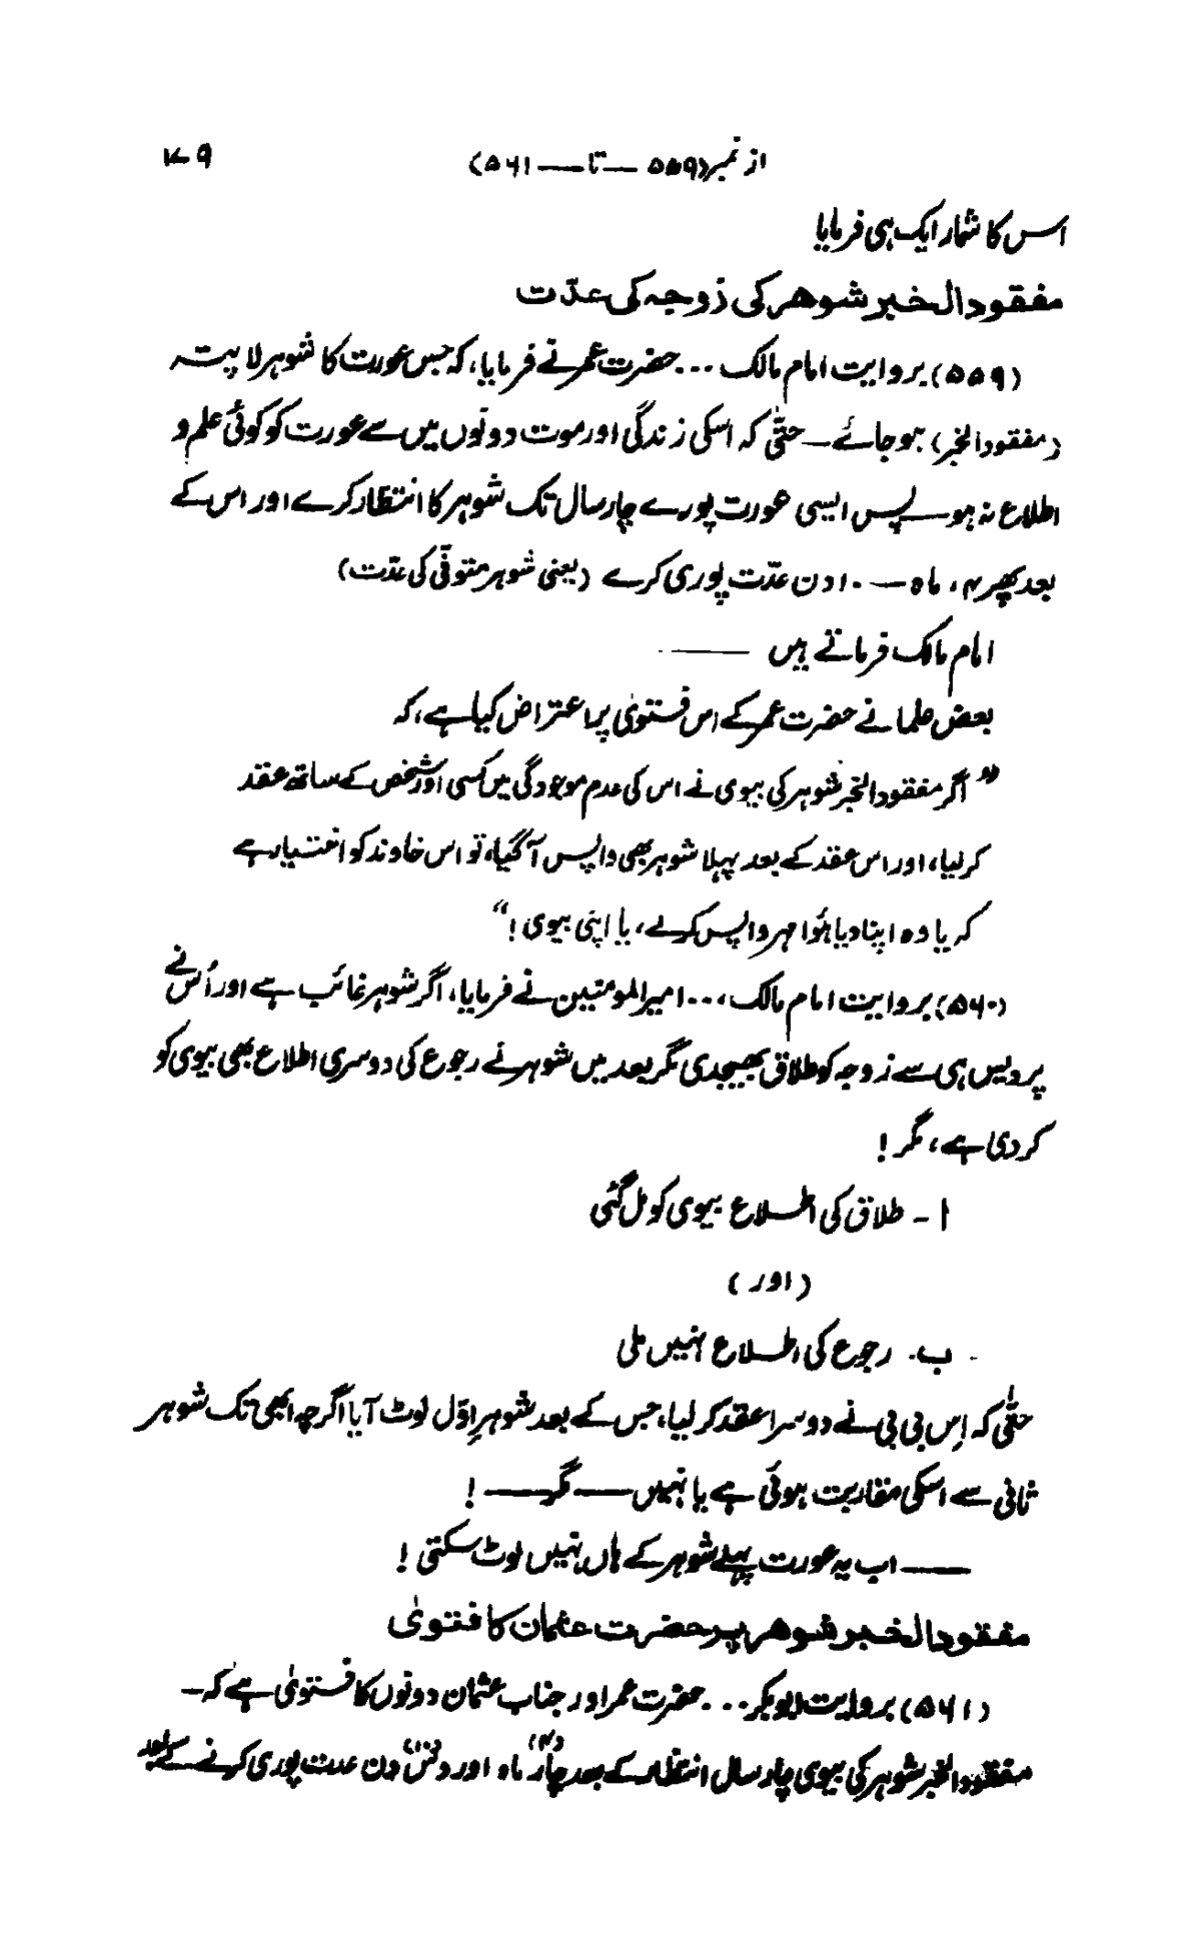 از نمبر (۵۵۹ — تا — ۵۶۱) ۱۷۹
اس کا شمار ایک ہی فرمایا
مفقود الخبر شوهر کی زوجہ کی عدّت
(۵۵۹) بروایت امام مالک ... حضرت عمر نے فرمایا، کہ جس عورت کا شوہر لا پتہ
(مفقود الخبر) ہو جائے — حتّٰی کہ اسکی زندگی اور موت دونوں میں سے عورت کو کوئی علم و
اطلاع نہ ہو — پس ایسی عورت پورے چار سال تک شوہر کا انتظار کرے اور اس کے
بعد پھر ۴، ماہ — ۱۰ دن عدّت پوری کرے (یعنی شوہر متوفّٰی کی عدّت)
امام مالک فرماتے ہیں ——
بعض علما نے حضرت عمر کے اس فتویٰ پر اعتراض کیا ہے، کہ
”اگر مفقود الخبر شوہر کی بیوی نے اس کی عدم موجودگی میں کسی اور شخص کے ساتھ عقد
کر لیا، اور اس عقد کے بعد پہلا شوہر بھی واپس آ گیا، تو اس خاوند کو اختیار ہے
کہ یا وہ اپنا دیا ہوُا مہر واپس کرلے، یا اپنی بیوی!“
(۵۶۰) بروایت امام مالک، ... امیرالمومنین نے فرمایا، اگر شوہر غائب ہے اور اُس نے
پردیس ہی سے زوجہ کو طلاق بھیجدی مگر بعد میں شوہر نے رجوع کی دوسری اطلاع بھی بیوی کو
کر دی ہے، مگر!
ا - طلاق کی اطلاع بیوی کو مل گئی
(اور)
ب - رجوع کی اطلاع نہیں ملی
حتّٰی کہ اِس بی بی نے دوسرا عقد کر لیا، جس کے بعد شوہرِ اوّل لوٹ آیا اگرچہ ابھی تک شوہر
ثانی سے اسکی مقاربت ہوئی ہے یا نہیں — مگر — !
—— اب یہ عورت پہلے شوہر کے ہاں نہیں لوٹ سکتی!
مفقود الخبر شوهر پر حضرت عثمان کا فتویٰ
(۵۶۱) بروایت ابوبکر ... حضرت عمر اور جناب عثمان دونوں کا فتویٰ ہے کہ —
مفقود الخبر شوہر کی بیوی چار سال انتظار کے بعد چار (۴) ماہ اور دس (۱۰) دن عدت پوری کرنے کے بعد